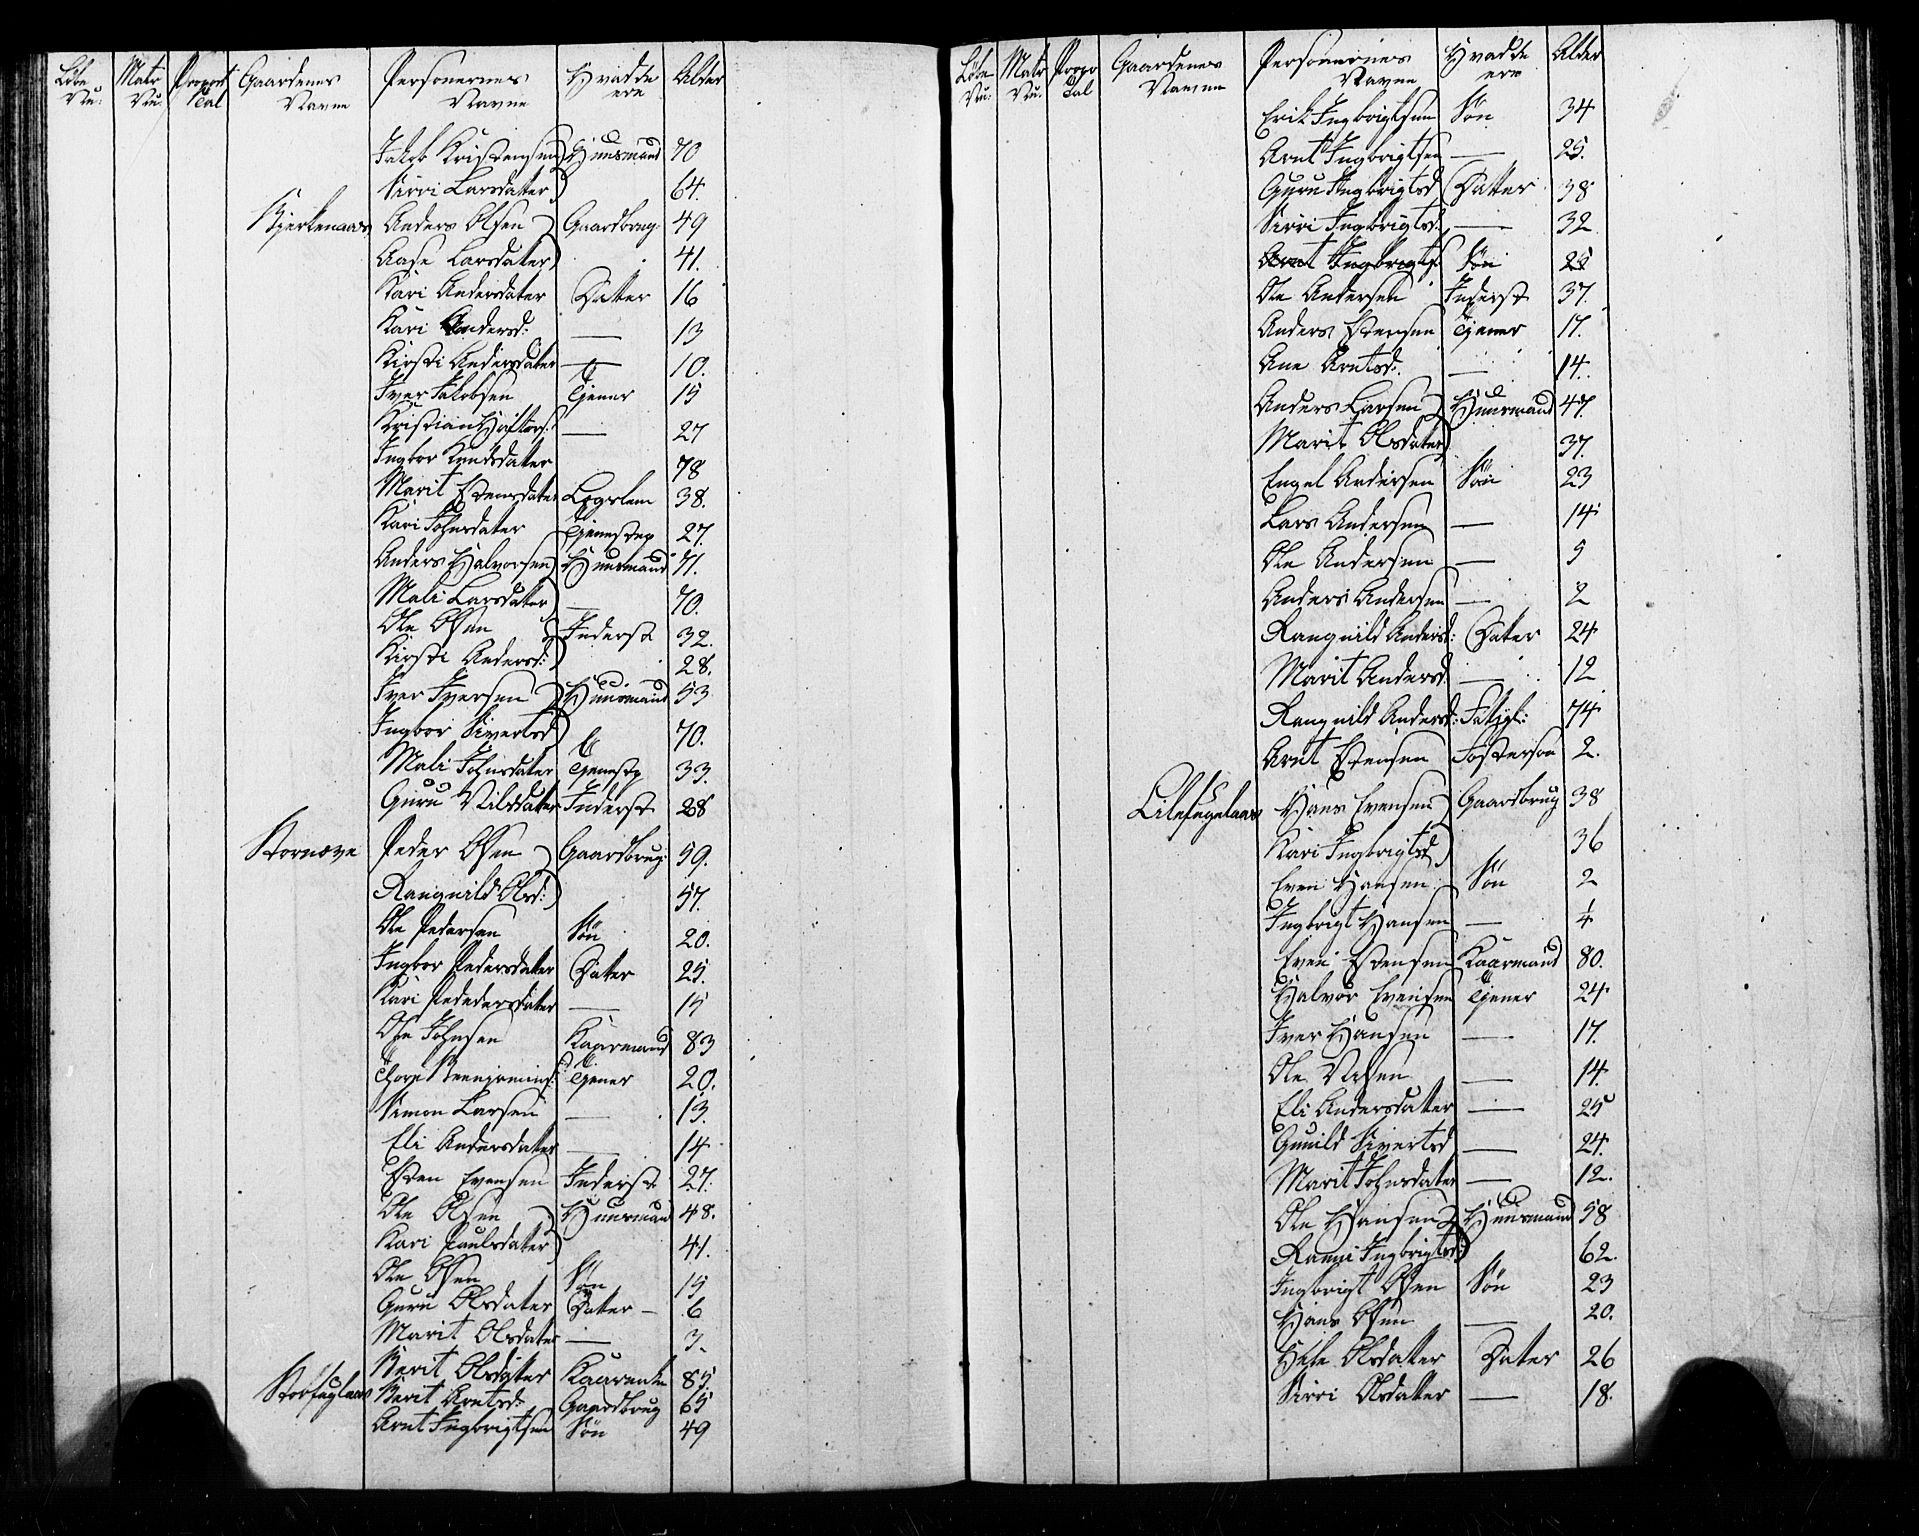 Løbe Nu: Matr Nu. Proport Tal Gaardenes Navne Personernes Navne Hvad de ere Alder
Jakob Kristensen Huusmand 70
Sirri Larsdatter 64.
Bjerkenaas Anders Olsen Gaardbrug. 49
Aase Larsdater 41.
Kari Andersdater Datter 16
Kari Andersd: — 13
Kirsti Andersdater — 10.
Iver Jakobsen Tjener 15
Kristian — 27
Ingbor Knudsdatter 78
Marit Estensdater Logslem 38.
Kari Johnsdater 27.
Anders Halvorsen Huusmand 71.
Mali Larsdatter — 70.
Ole Olsen Inderst 32.
Kirsti Andersd: 28.
Iver Iversen Huusmand 53
Ingbor Sivertsd 70.
Mali Johnsdater 33.
Guru Nilsdater Inderst 28
Peder Olsen Gaardbrug: 59.
Rangnild Olsd: 57.
Ole Pedersen Søn 20.
Ingbor Pedersdater Dater 25.
Kari Pededersdater — 15
Ole Johnsen Kaarmand 83
Tjener 20.
Simon Larsen — 13.
Eli Andersdater — 14
Esten Evensen Inderst 27.
Ole Olsen Huusmand 48.
Kari Paulsdater 41.
Ole Olsen Søn 15
Guru Olsdater Dater — 6
Marit Olsdater — 3.
Berit Olsdatter 85.
Storfuglaas Berit Arntsd: Gaardbrug 65
Arnt Ingbrigtsen Søn 49
Løbe Nu: Matr Nu. Propo Tal Gaardenes Navne Personernes Navne Hvad de ere Alder
Erik Ingbrigtsen Søn 34
Arnt Ingbrigtsen — 25.
Guru Ingbrigtsd Datter 38
Sirri Ingbrigtsd: — 32
Arnt Ingbrigts: Søn 25
Ole Andersen Inderst 37.
Anders Estensen Tjener 17.
Ane Arntsd: — 14.
Anders Larsen Huusmand 47.
Marit Olsdater 37.
Engel Andersen Søn 23
Lars Andersen — 14
Ole Andersen — 5
Anders Andersen — 2
Rangnild Andersd: Dater 24
Marit Andersd — 12
Rangnild Andersd: 74
Arnt Estensen Fosterson 2.
Lilefugelaas Hans Evensen Gaardbrug 38
Kari Ingbrigtsd 36
Even Hansen Søn 2
Ingbrigt Hansen — ¼
Even Estensen Kaarmand 80.
Halvor Evensen Tjener 24
Iver Hansen — 17.
Ole Nilsen — 14.
Eli Andersdatter — 25
Gunild Sivertsd — 24.
Marit Johnsdater — 12.
Ole Hansen Huusmand 58
Ingbrigtsd: 62.
Ingbrigt Olsen Søn 23
Hans Olsen — 20.
Olsdatter Dater 26
Sirri Olsdatter — 18.